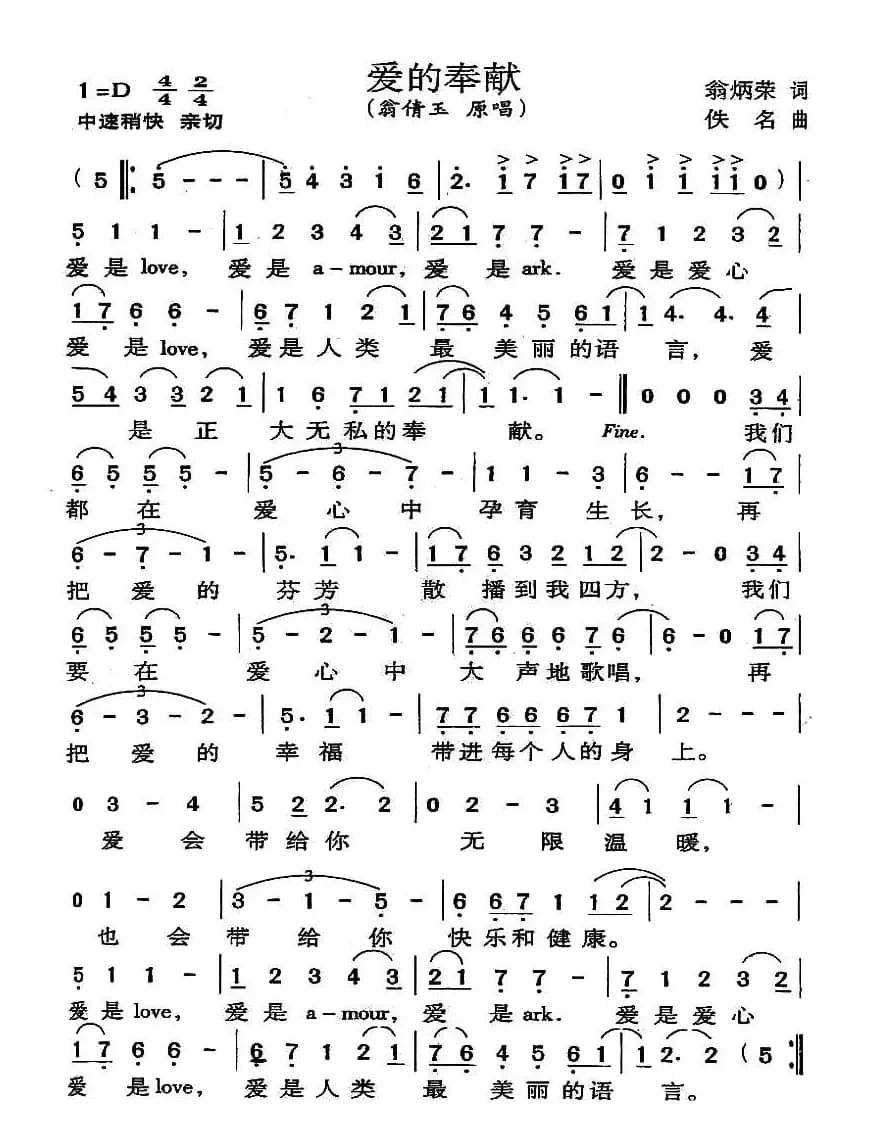 爱的奉献
1=D 4/4 2/4 (翁倩玉 原唱) 翁炳荣 词
中速稍快 亲切 佚名 曲
( 5 ‖: 5 - - - | 5 4 3 1 6 | 2. 1 7 1 7 | 0 1 1 1 1 0 ) |
5 1 1 - | 1 2 3 4 3 | 2 1 7 7 - | 7 1 2 3 2
爱是love, 爱是a-mour,爱 是ark. 爱是爱心
1 7 6 6 - | 6 7 1 2 1 | 7 6 4 5 6 1 | 1 4. 4. 4
爱 是love, 爱是人类 最 美丽的语 言, 爱
5 4 3 3 2 1 | 1 6 7 1 2 1 | 1 1. 1 - ‖ 0 0 0 3 4
是正 大无私的奉 献。 Fine. 我们
6 5 5 5 - | 5 - 6 - 7 - | 1 1 - 3 | 6 - - 1 7
都 在 爱心中孕育生长, 再
3
6 - 7 - 1 - | 5. 1 1 - | 1 7 6 3 2 1 2 | 2 - 0 3 4
把爱的芬芳 散播到我四方, 我们
3
6 5 5 5 - | 5 - 2 - 1 - | 7 6 6 6 7 6 | 6 - 0 1 7
要 在 爱心中大声地歌唱, 再
3
6 - 3 - 2 - | 5. 1 1 - | 7 7 6 6 6 7 1 | 2 - - -
把爱的幸福 带进每个人的身 上。
0 3 - 4 | 5 2 2. 2 | 0 2 - 3 | 4 1 1 1 -
爱会带给你 无限温暖,
3
0 1 - 2 | 3 - 1 - 5 - | 6 6 7 1 1 2 | 2 - - -
也会带给你快乐和健康。
5 1 1 - | 1 2 3 4 3 | 2 1 7 7 - | 7 1 2 3 2
爱是love, 爱是a-mour,爱 是ark. 爱是爱心
1 7 6 6 - | 6 7 1 2 1 | 7 6 4 5 6 1 | 1 2. 2 ( 5 :‖
爱 是love, 爱是人类 最 美丽的语 言。